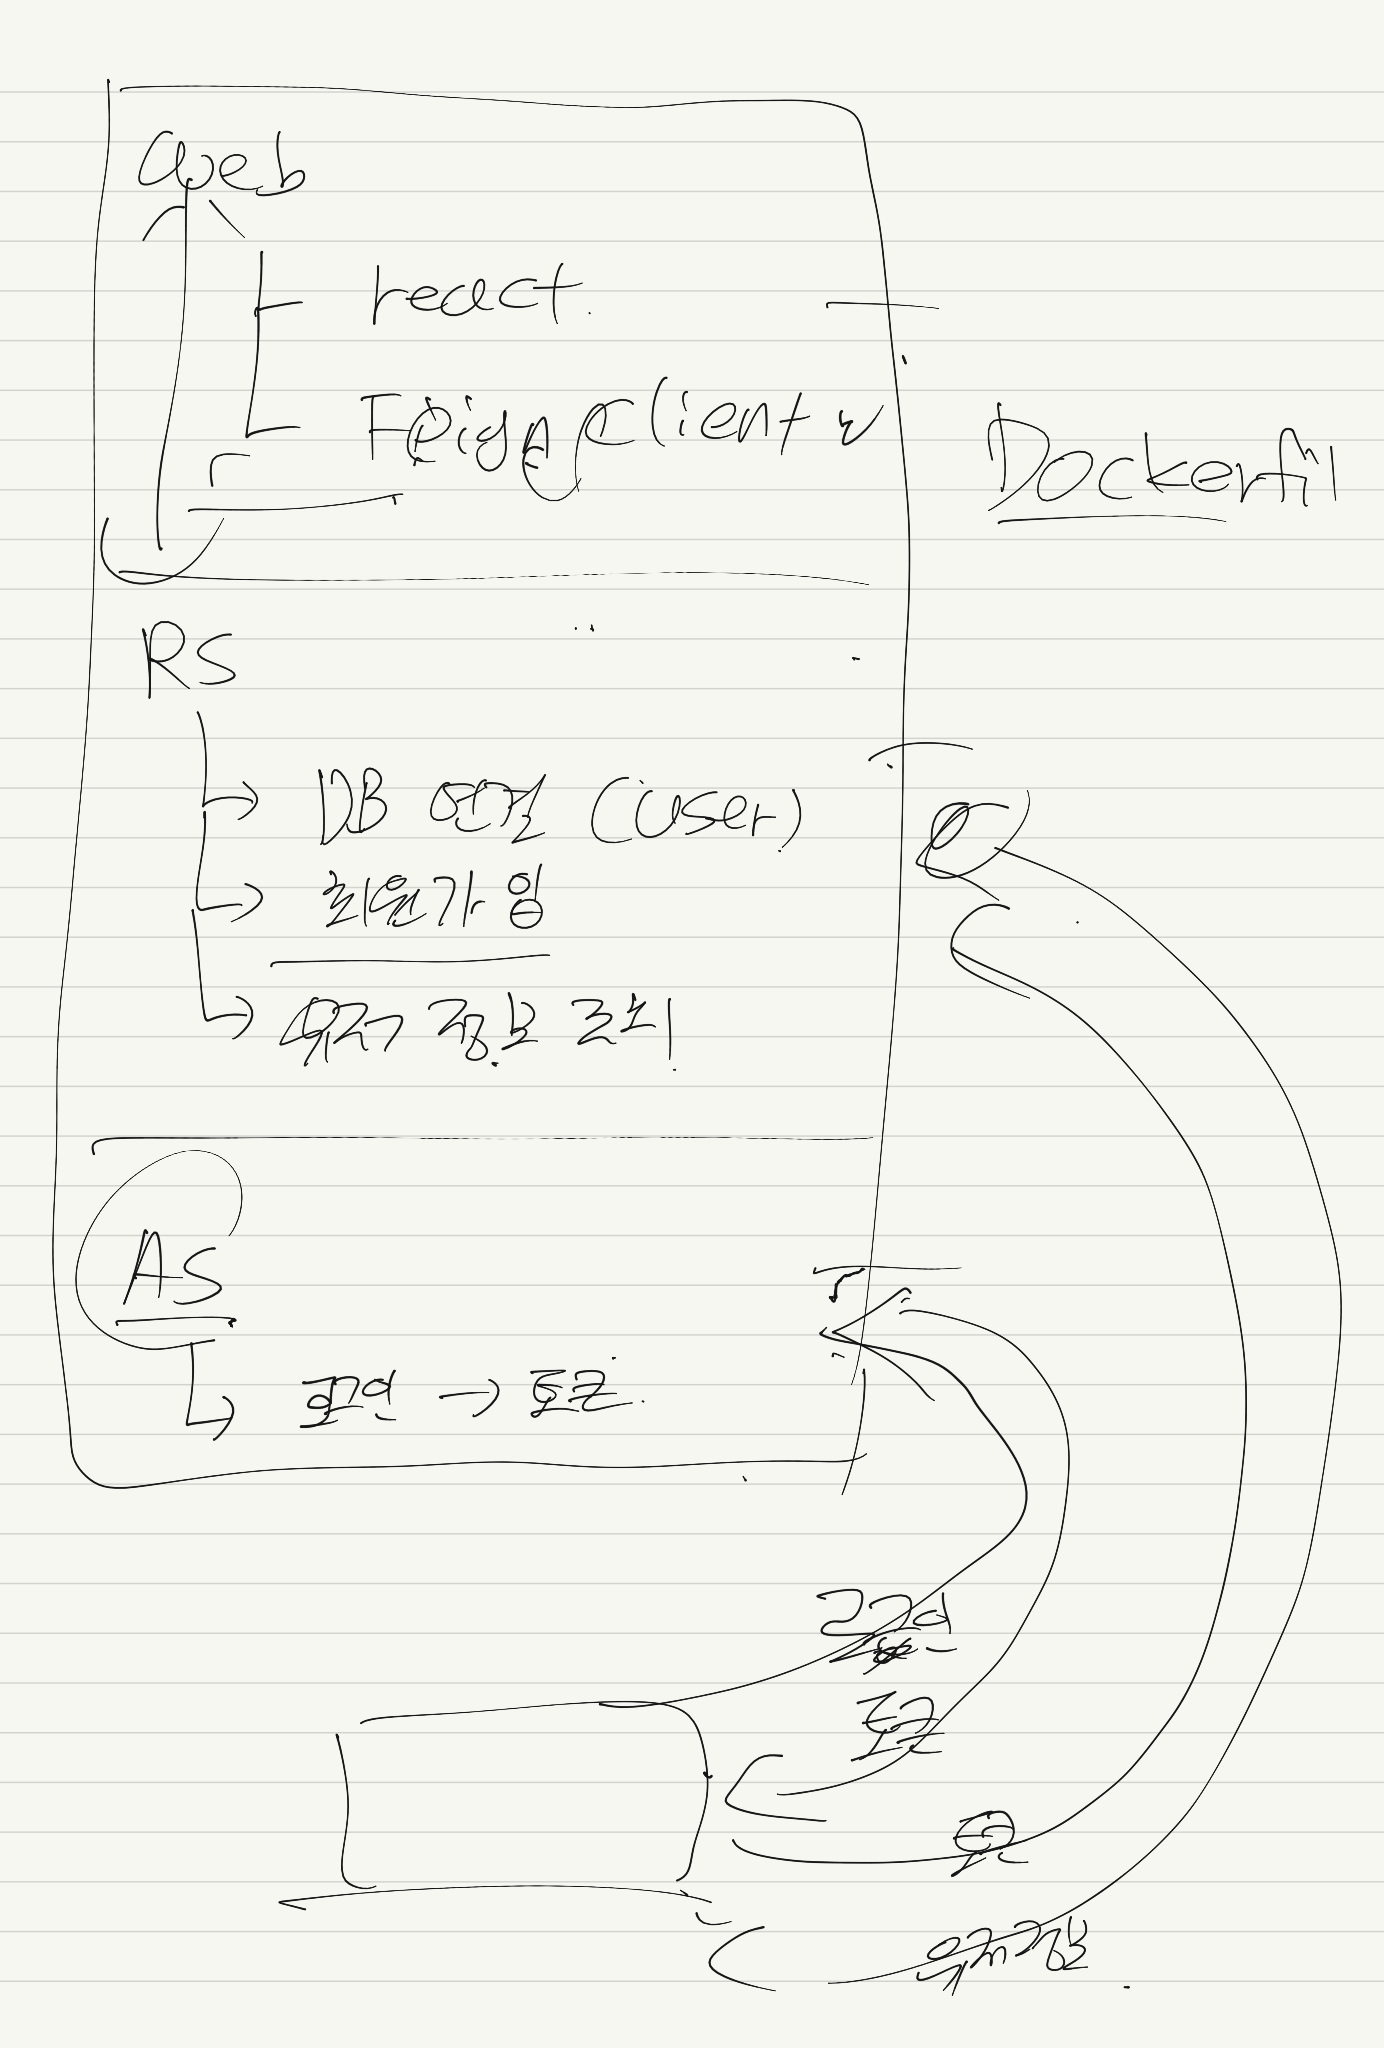 Web
react.
Feign Client
Dockerfil
RS
DB 연결 (user)
회원가입
유저 정보 조회
AS
로그인 → 토큰.
로그인
토큰
토큰
유저정보